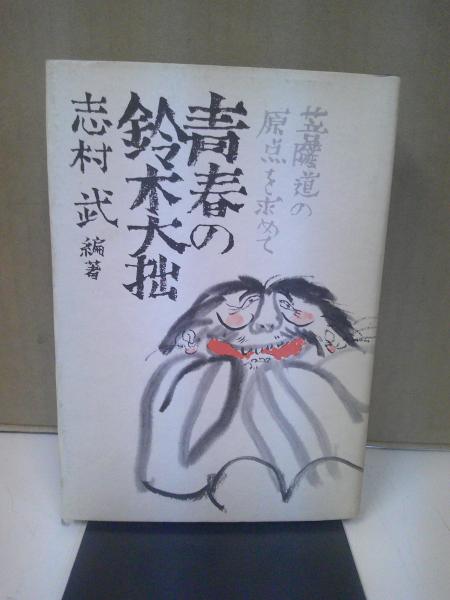 菩薩道の
原点を求めて
青春の
鈴木大拙
志村武 編著